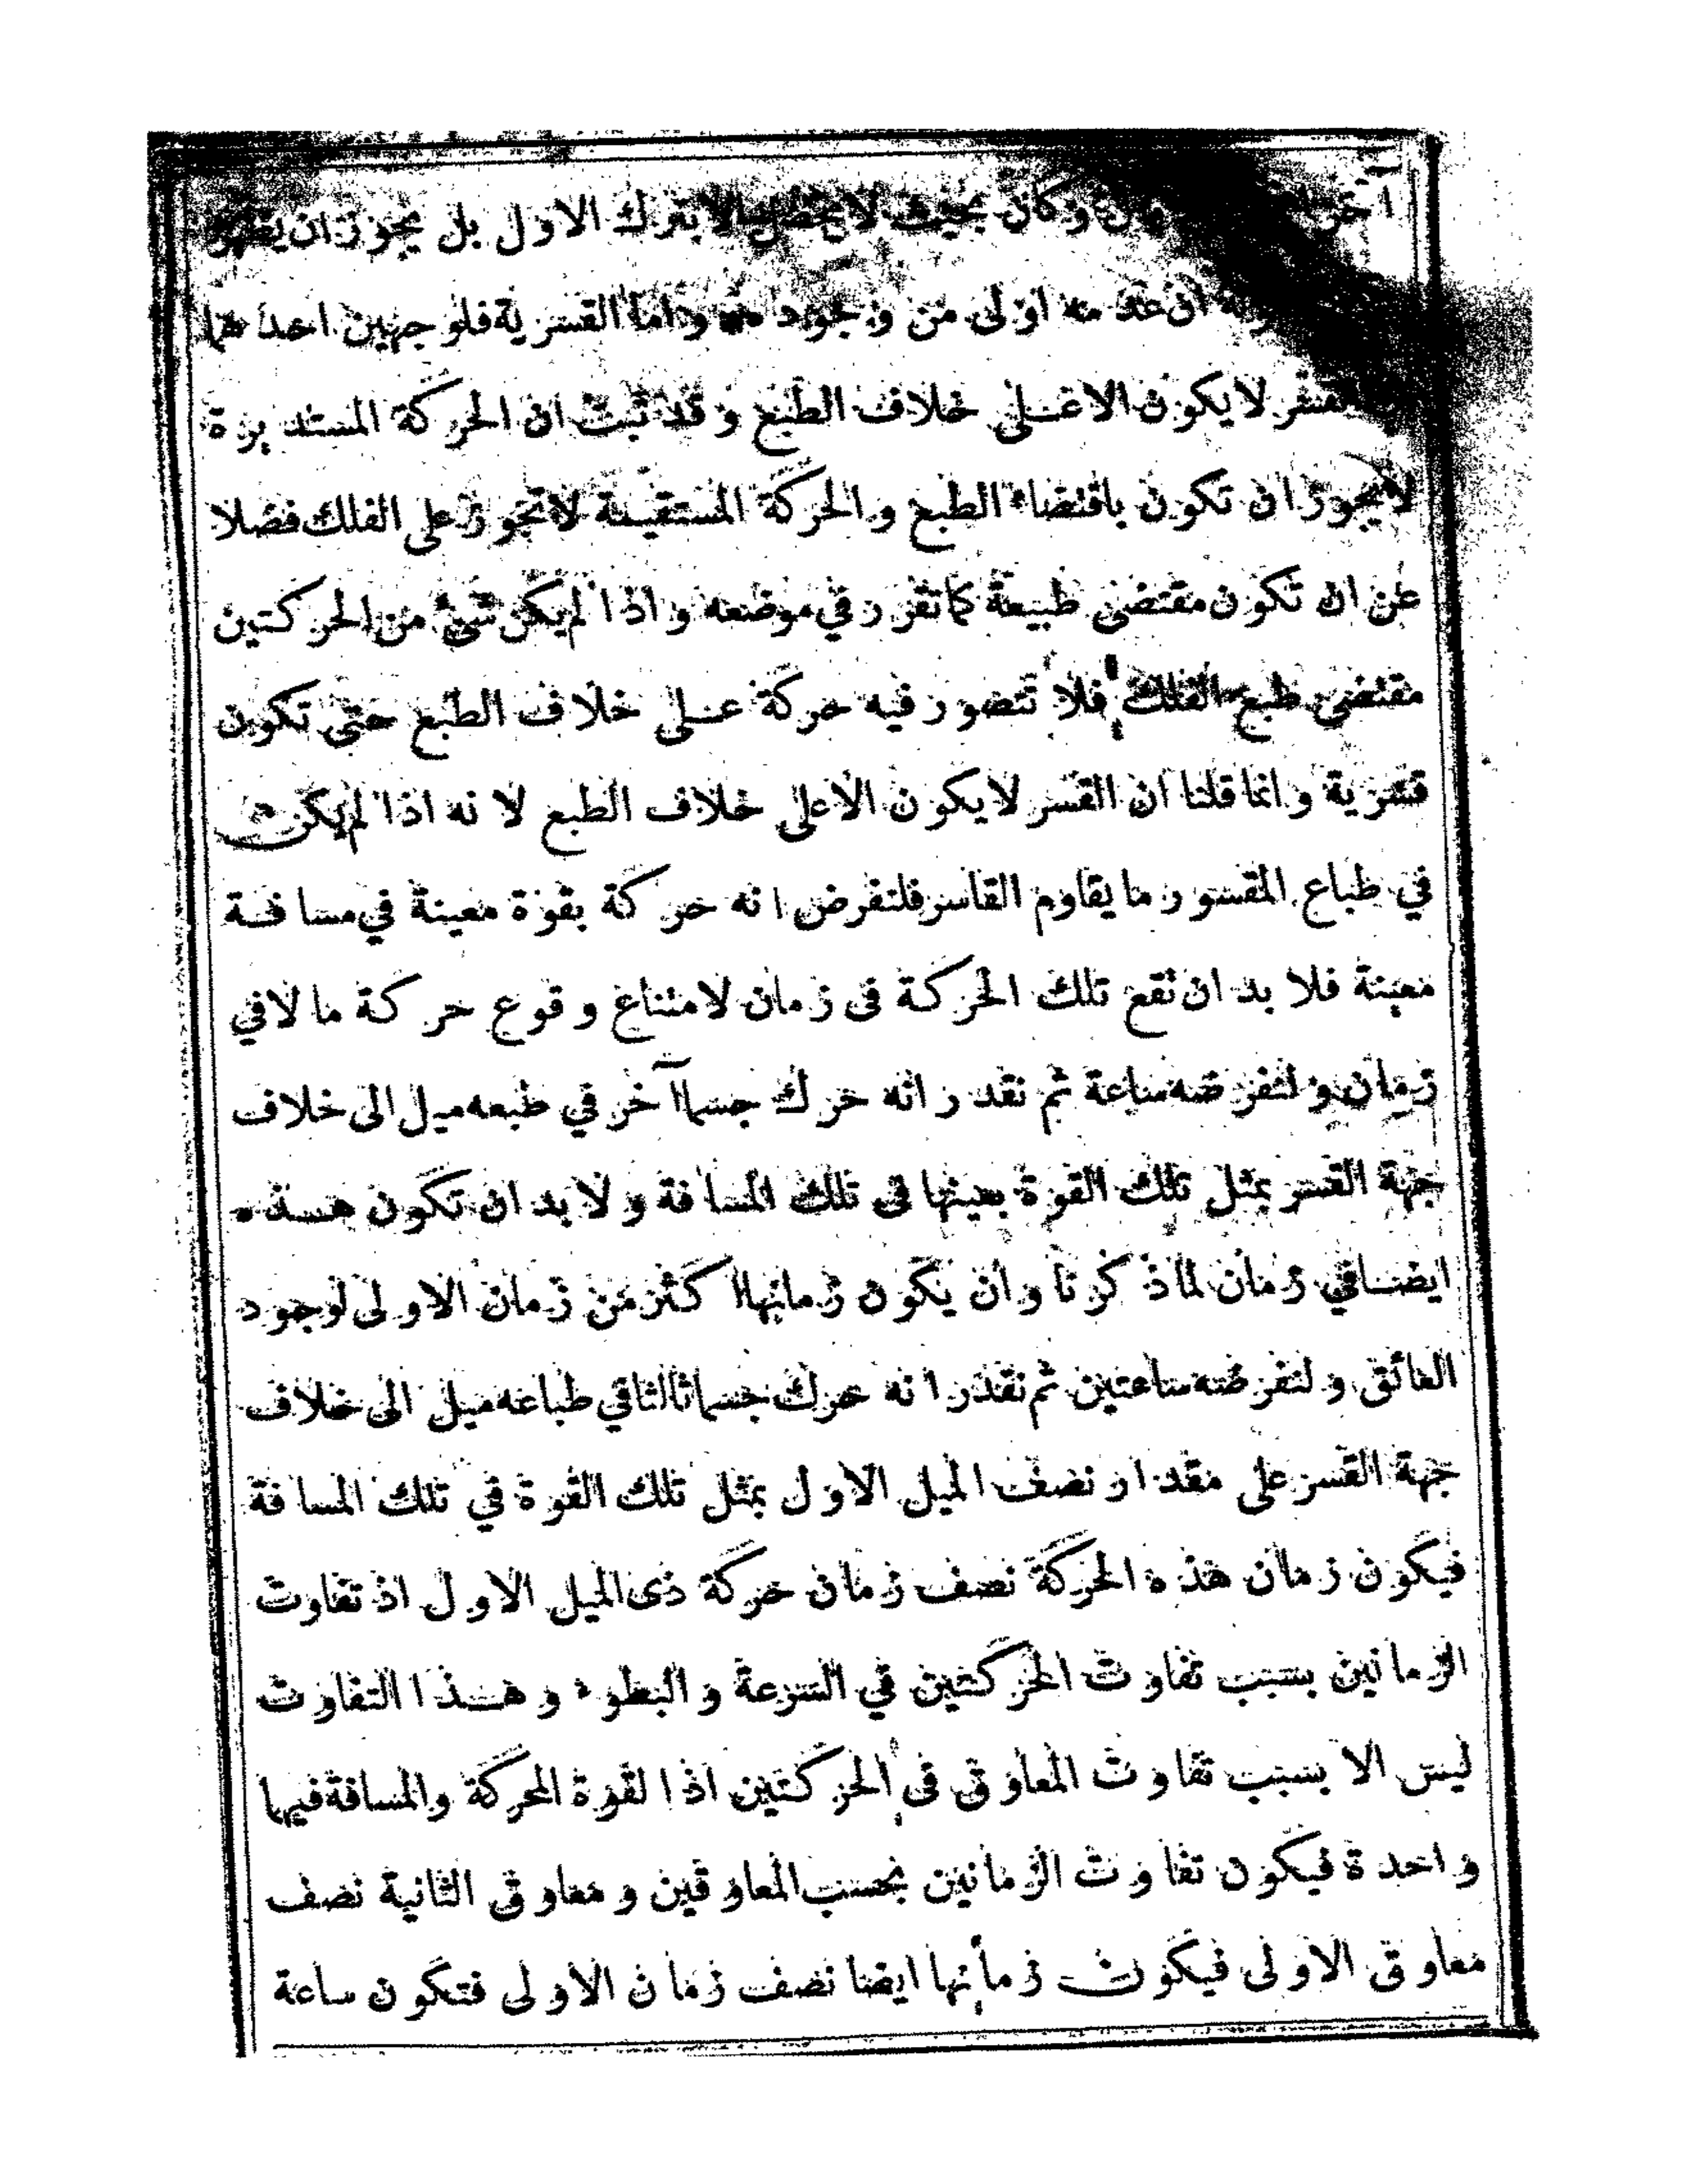 آخر وكان بحيث لا يحصل الا بترك الاول بل يجوز ان يظهر
ان عدمه اولى من وجوده واما القسرية فلوجهين احدهما
القسر لا يكون الا على خلاف الطبع وقد ثبت ان الحركة المستديرة
لا يجوز ان تكون باقتضاء الطبع والحركة المستقيمة لا تجوز على الفلك فضلا
عن ان تكون مقتضى طبيعة كما تقرر في موضعه واذا لم يكن شئ من الحركتين
مقتضى طبع الفلك فلا تتصور فيه حركة على خلاف الطبع حتى تكون
قسرية وانما قلنا ان القسر لا يكون الا على خلاف الطبع لانه اذا لم يكن
في طباع المقسور ما يقاوم القاسر فلنفرض انه حركة بقوة معينة في مسافة
معينة فلا بد ان تقع تلك الحركة في زمان لامتناع وقوع حركة ما لا في
زمان ولنفرضه ساعة ثم نقدر انه حرك جسما آخر في طبعه ميل الى خلاف
جهة القسر بمثل تلك القوة بعينها في تلك المسافة ولا بد ان تكون هذه
ايضا في زمان لما ذكرنا وان يكون زمانها اكثر من زمان الاولى لوجود
العائق ولنفرضه ساعتين ثم نقدر انه حرك جسما ثالثا في طباعه ميل الى خلاف
جهة القسر على مقدار نصف الميل الاول بمثل تلك القوة في تلك المسافة
فيكون زمان هذه الحركة نصف زمان حركة ذى الميل الاول اذ تفاوت
الزمانين بسبب تفاوت الحركتين في السرعة والبطوء وهذا التفاوت
ليس الا بسبب تفاوت المعاوق في الحركتين اذ القوة المحركة والمسافة فيهما
واحدة فيكون تفاوت الزمانين بحسب المعاوقين ومعاوق الثانية نصف
معاوق الاولى فيكون زمانها ايضا نصف زمان الاولى فتكون ساعة